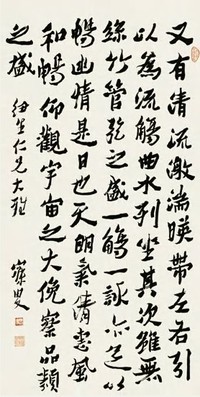 又有清流激湍暎帶左右引
以為流觴曲水列坐其次雖無
絲竹管弦之盛一觴一詠亦足以
暢幽情是日也天朗氣清惠風
和暢仰觀宇宙之大俛察品類
之盛
生仁兄大雅
寐叟